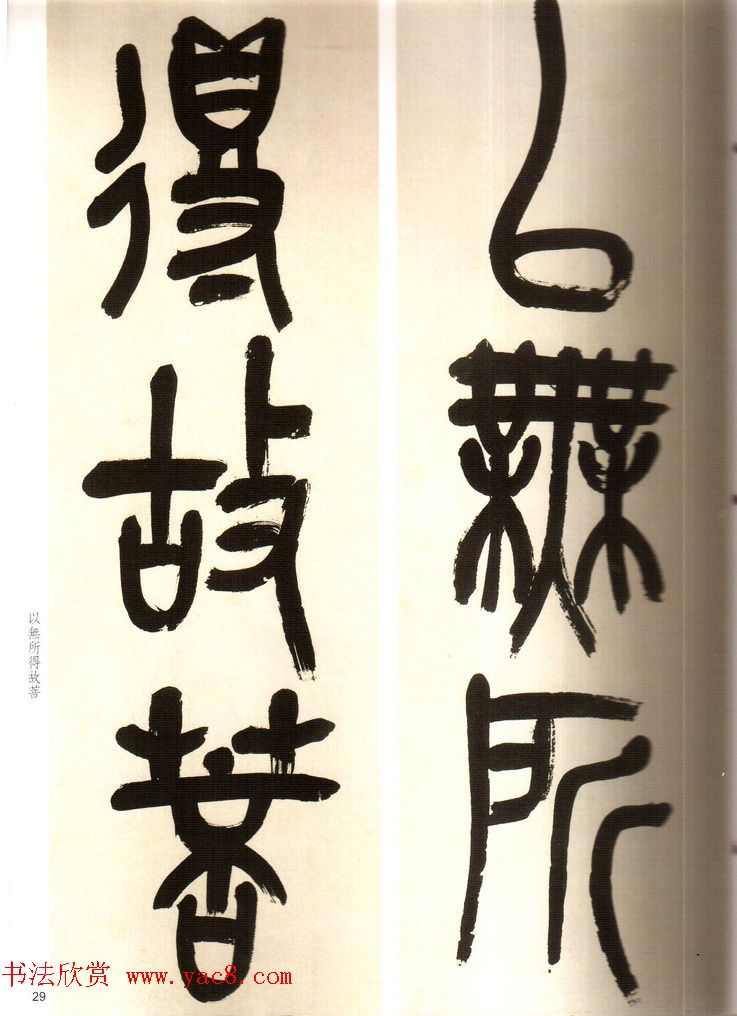 以無所
得故菩
以無所得故菩
书法欣赏 www.yac8.com
29